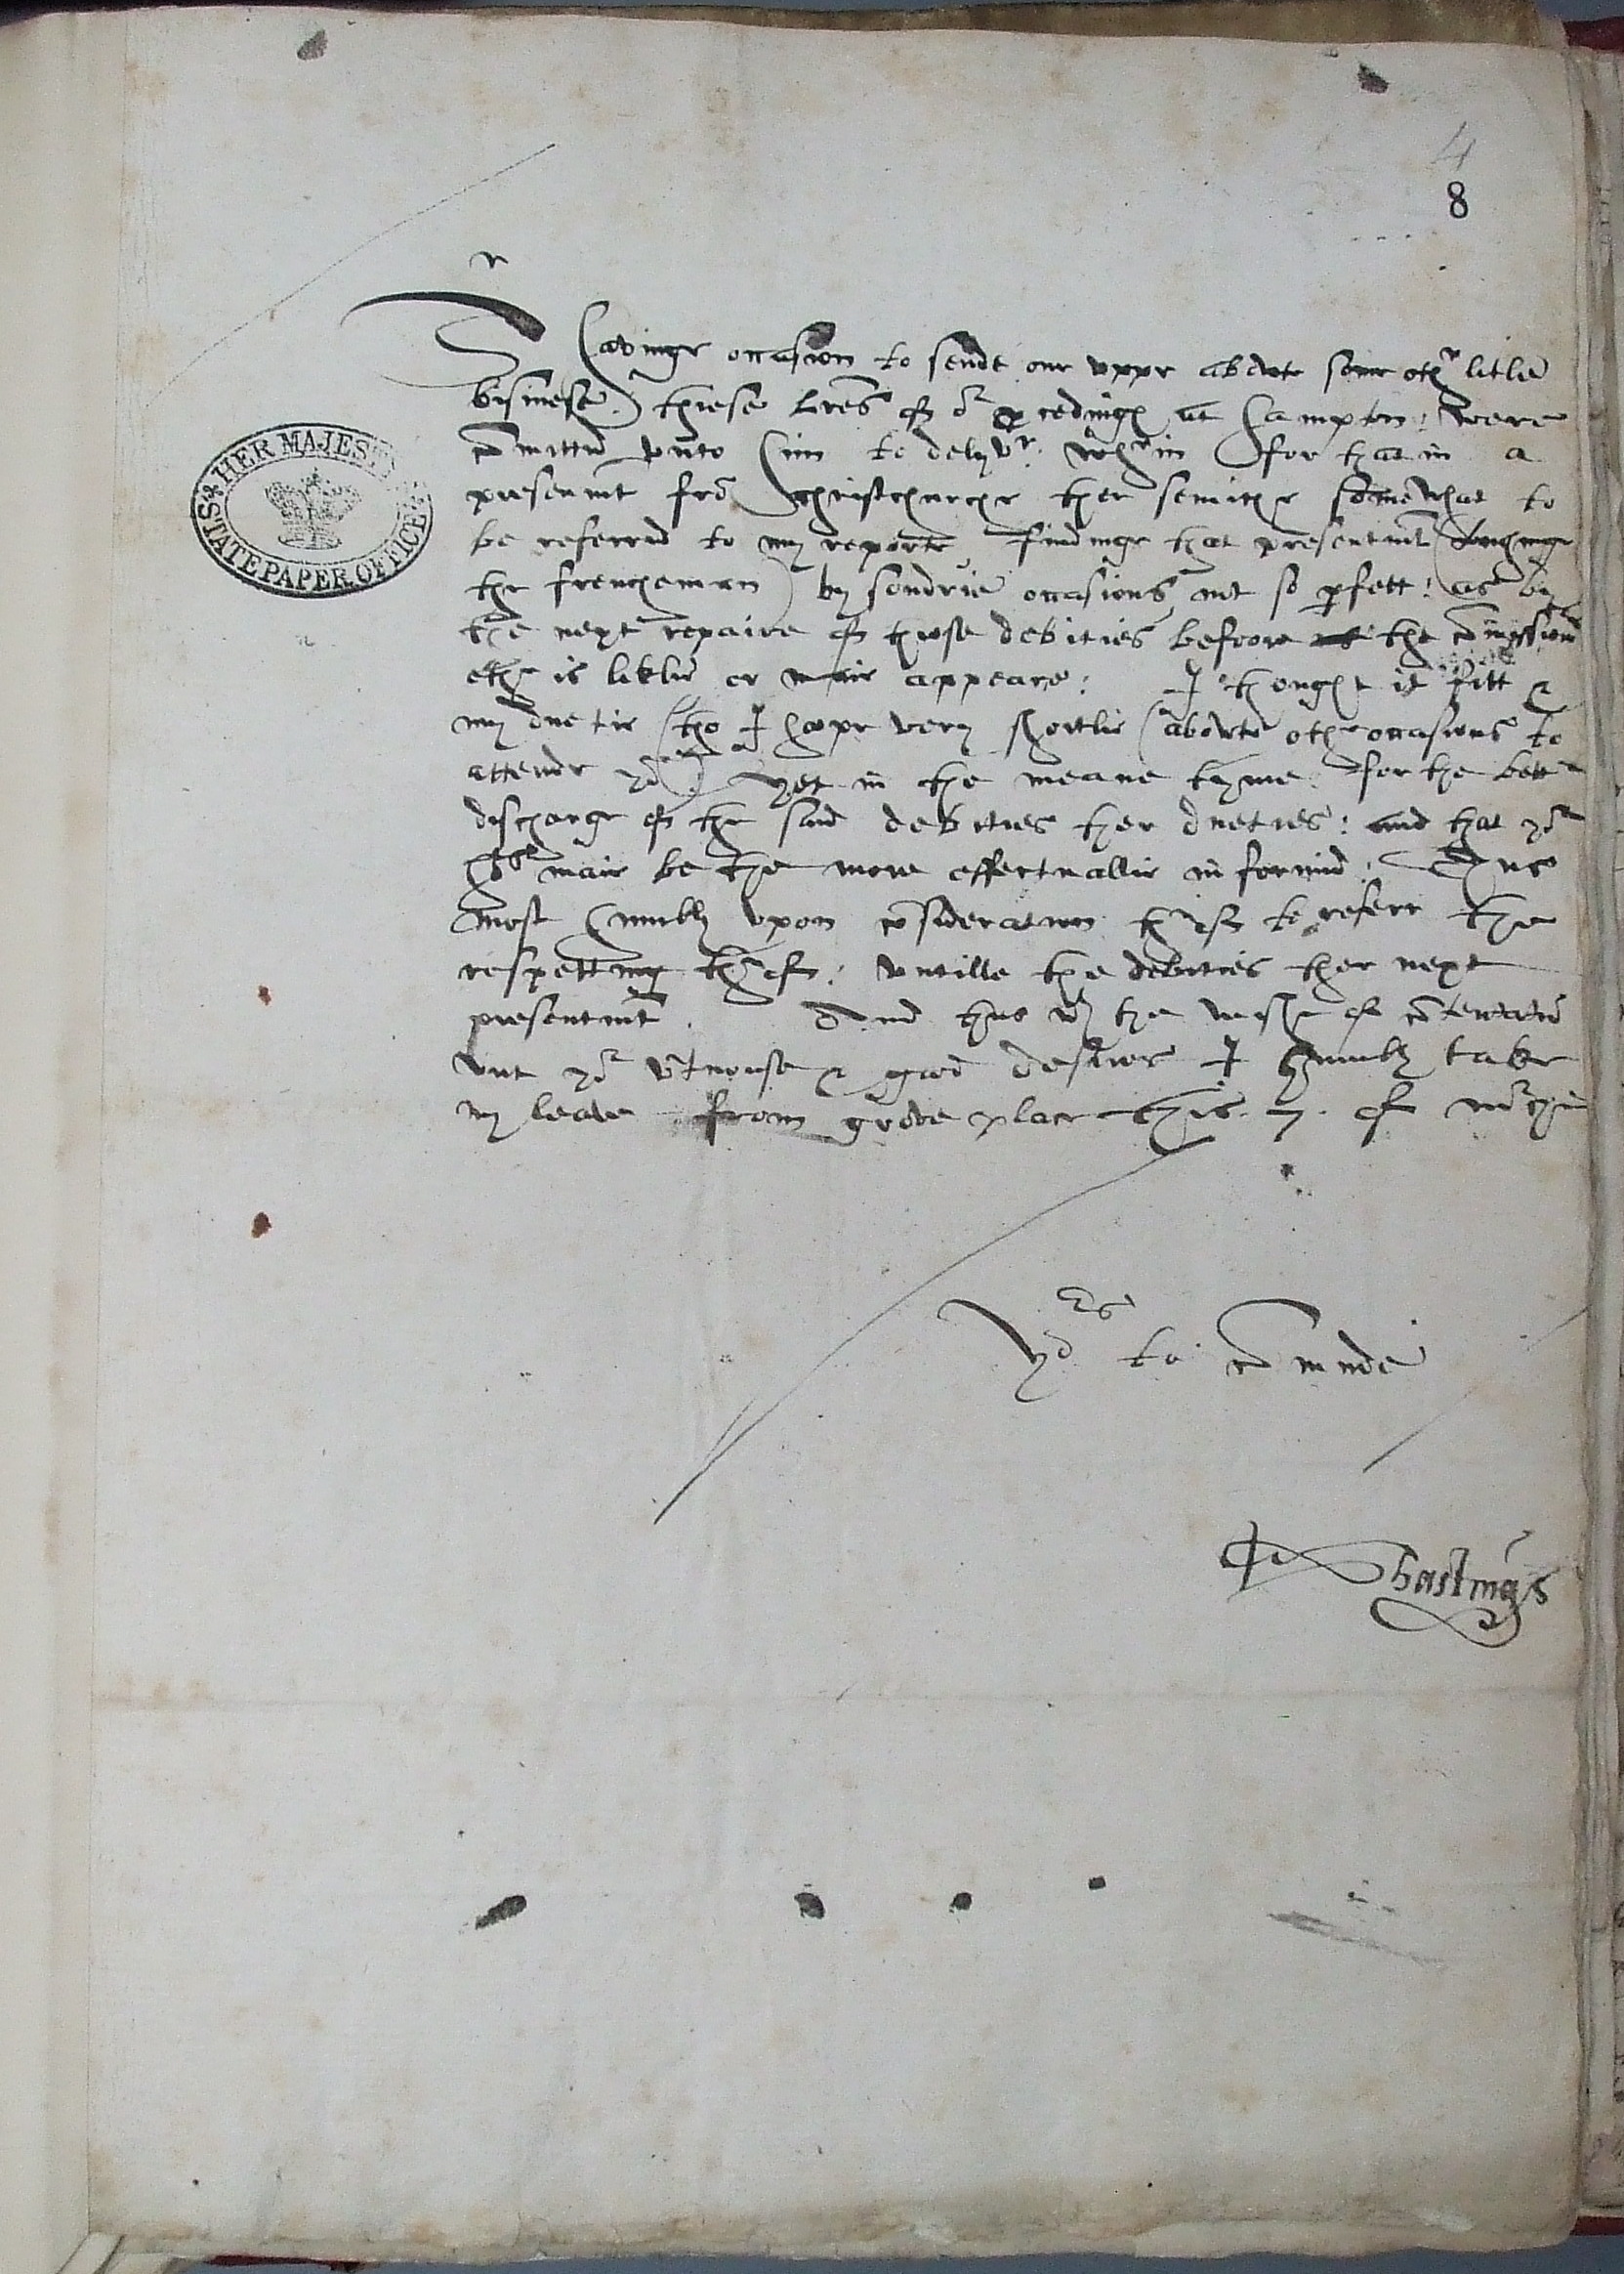 4
8
Sr Havinge occasion to sende one uppe abowte some othr litle
bisinese) thiese lres of or pcedings at Hampton: were
comitted vnto him to delyvr. wherin for that in a
presentmt fro Christchurche ther semithe somewhat to
be referrid to my reporte findinge that presentmt
the frencheman) by sondrie occasions not so pfett: as by
the next repaire of those debities befoore the comission
ethr is liklie or maie appeare: I thought it fitt &
my duetie (tho I hoope very shortlie (abowte othr occasions to
attende yo) yet in the meane tyme: for the bettr
discharge of the said debities ther dueties: and that yor
maie be the more effectuallie informid: Thus
most humbly vpon consideration therof to referr the
respetting therof: vntille the debities ther next
presentmt. And thus wth the wishe of
vnt yor & good desires I humbly take
my leave from grove place this .7. of mrche
Yors to comande
hastings
HER MAJESTY'S
STATE PAPER OFFICE